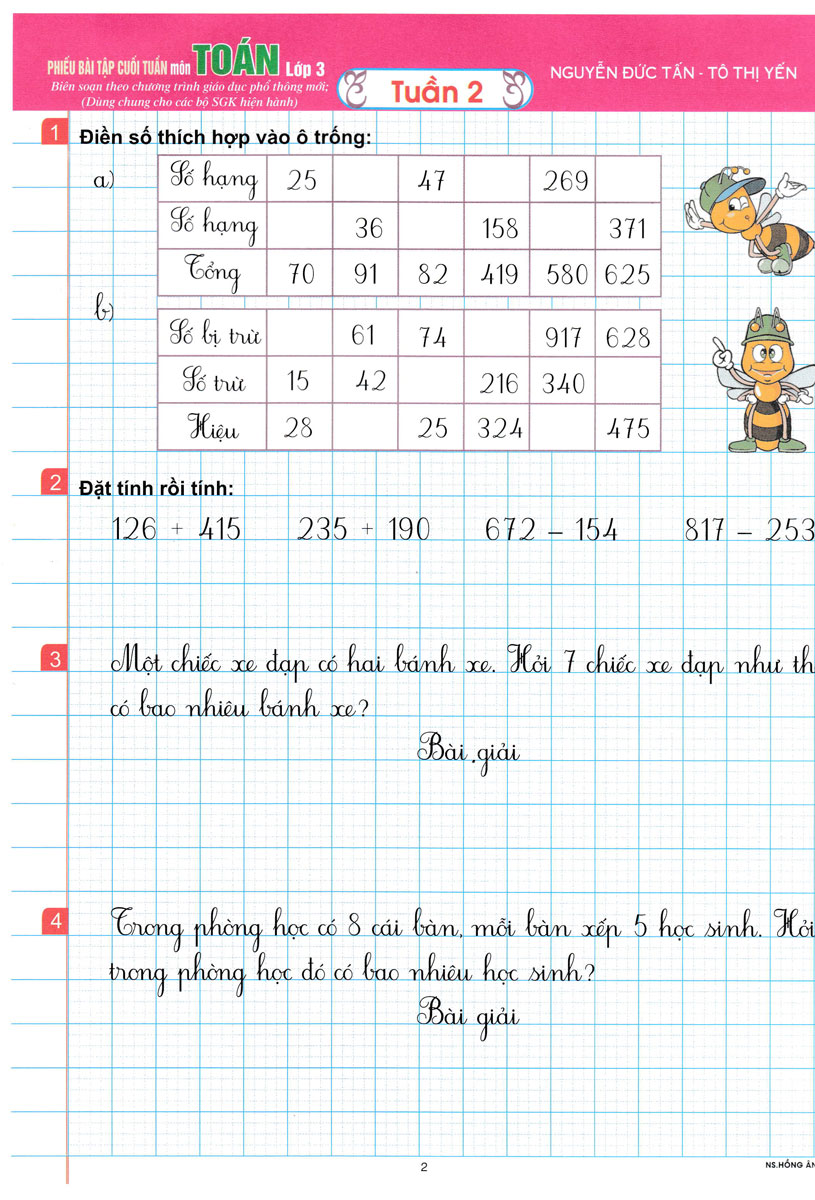 PHIẾU BÀI TẬP CUỐI TUẦN môn TOÁN Lớp 3
Biên soạn theo chương trình giáo dục phổ thông mới;
(Dùng chung cho các bộ SGK hiện hành)
Tuần 2
NGUYỄN ĐỨC TẤN - TÔ THỊ YẾN
1 Điền số thích hợp vào ô trống:
a)
Số hạng 25 47 269
Số hạng 36 158 371
Tổng 70 91 82 419 580 625
b)
Số bị trừ 61 74 917 628
Số trừ 15 42 216 340
Hiệu 28 25 324 475
2 Đặt tính rồi tính:
126 + 415 235 + 190 672 – 154 817 – 253
3 Một chiếc xe đạp có hai bánh xe. Hỏi 7 chiếc xe đạp như th
có bao nhiêu bánh xe?
Bài giải
4 Trong phòng học có 8 cái bàn, mỗi bàn xếp 5 học sinh. Hỏi
trong phòng học đó có bao nhiêu học sinh?
Bài giải
2
NS.HỒNG ÂN